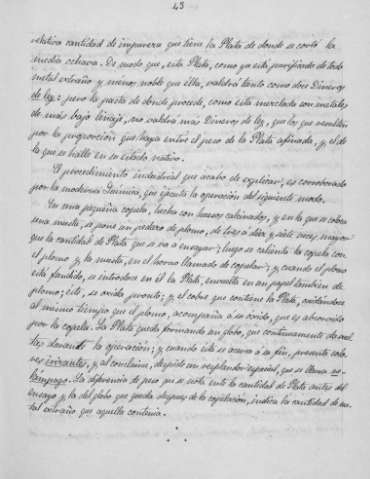 43
relativa cantidad de impureza que tiene la Plata de donde se cortó la
media ochava. De modo que, esta Plata, como ya está purificada de todo
metal extraño y menos noble que élla, valdrá tanto como doce Dineros
de ley: pero la pasta de donde procede, como está mezclada con metales
de más bajo linaje, no valdrá más Dineros de ley, que los que resulten
por la proporción que haya entre el peso de la Plata afinada, y el de
la que se halle en su estado nativo.
El procedimiento industrial que acabo de explicar, es corroborado
por la moderna Química, que ejecuta la operación del siguiente modo.
En una pequeña copela, hecha con huesos calcinados, y en la que se coloca
una muestra, se pone un pedazo de plomo, de tres á diez y siete veces mayor
que la cantidad de Plata que se va á ensayar; luego se calienta la copela con
el plomo y la muestra, en el horno llamado de copelar; y cuando el plomo
está fundido, se introduce en él la Plata, envuelta en un papel tambien de
plomo; éste, se oxida pronto; y el cobre que contiene la Plata, oxidándose
al mismo tiempo que el plomo, acompaña á su óxido, que es absorvido
por la copela. La Plata queda formando un globo, que continuamente
durante la operación; y cuando ésta se acerca á su fin, presenta colo-
res irisantes, y al concluirse, despide un resplandor especial, que se llama re-
lámpago. La diferencia de peso que se nota entre la cantidad de Plata antes del
ensayo y la del globo que queda despues de la copelación, indica la cantidad de me-
tal extraño que aquella contenia.